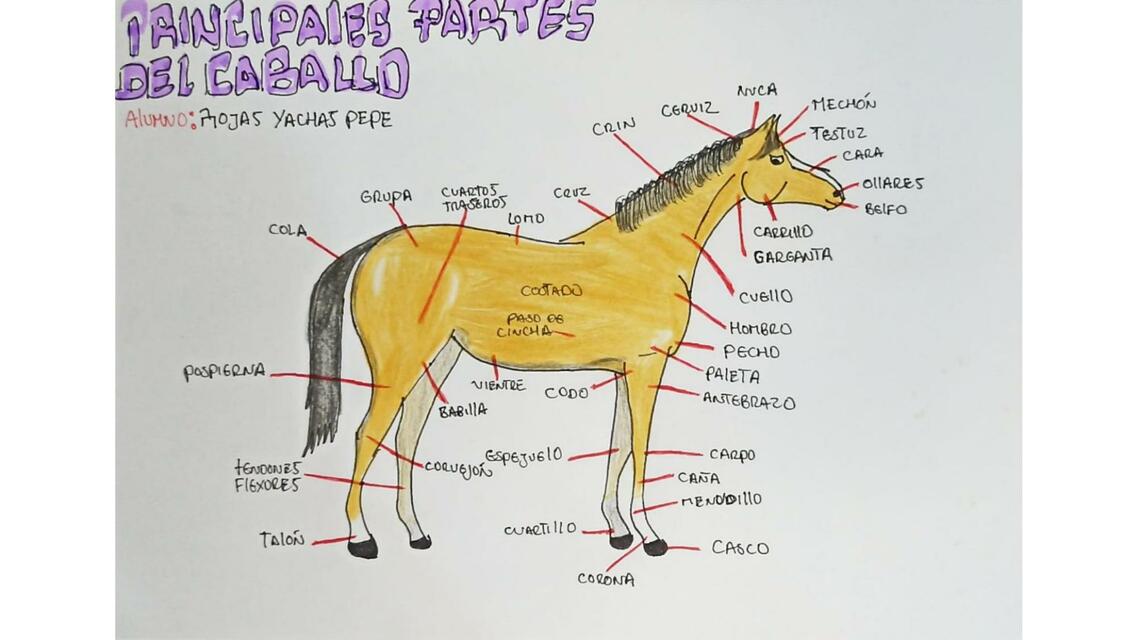 PRINCIPALES PARTES
DEL CABALLO
ALUMNO: ROJAS YACHAS PEPE
NUCA
CERVIZ
MECHÓN
CRIN
TESTUZ
CARA
CRUZ
OLLARES
BELFO
GRUPA
CUARTOS
TRASEROS
LOMO
COLA
CARRILLO
GARGANTA
COSTADO
CUELLO
PASO DE
CINCHA
HOMBRO
PECHO
POSPIERNA
VIENTRE
CODO
PALETA
BABILLA
ANTEBRAZO
ESPEJUELO
CARPO
TENDONES
FLEXORES
CORVEJÓN
CAÑA
MENUDILLO
CUARTILLO
TALÓN
CASCO
CORONA